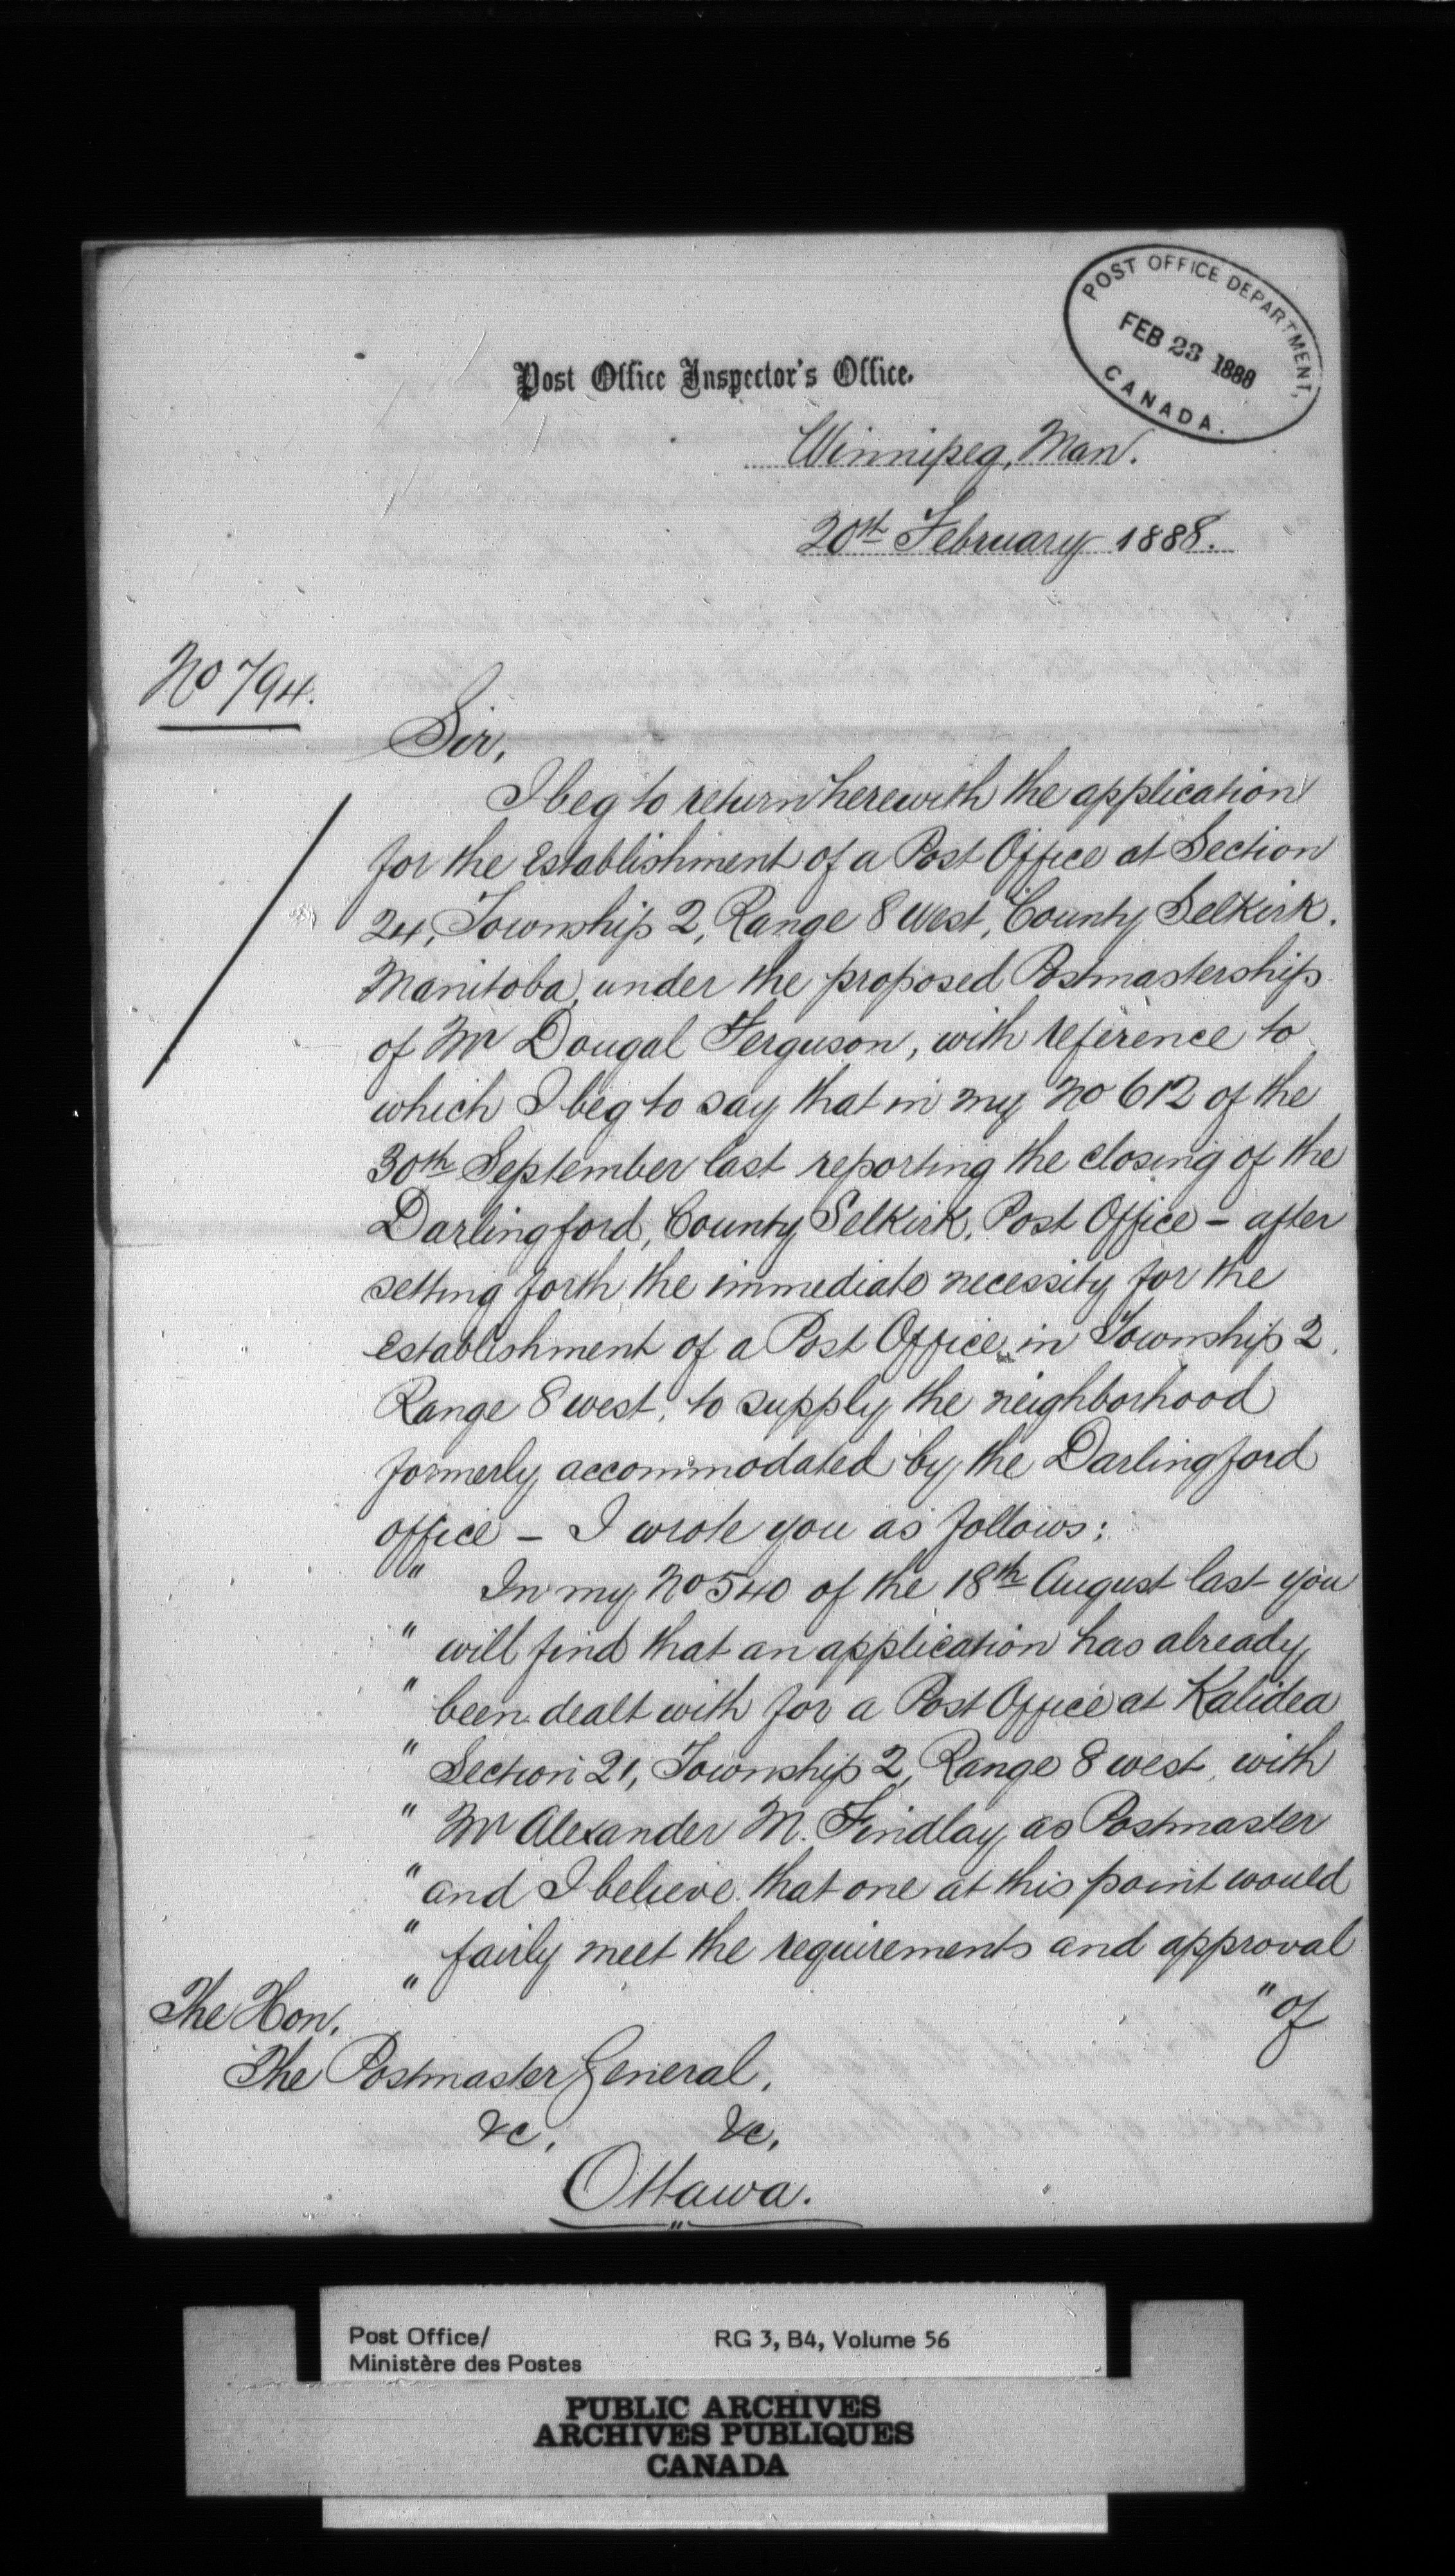 POST OFFICE DEPARTMENT,
FEB 23 1888
CANADA.
Post Office Inspector's Office.
Winnipeg, Man.
20th February 1888.
No 794.
Sir,
I beg to return herewith the application
for the establishment of a Post Office at Section
24, Township 2, Range 8 West, County Selkirk.
Manitoba, under the proposed Postmastership
of Mr Dougal Ferguson, with reference to
which I beg to say that in my No 612 of the
30th September last reporting the closing of the
Darlingford, County Selkirk, Post Office - after
setting forth the immediate necessity for the
establishment of a Post Office in Township 2,
Range 8 west, to supply the neighborhood
formerly accommodated by the Darlingford
office - I wrote you as follows:
" In my No 540 of the 18th August last you
" will find that an application has already
" been dealt with for a Post Office at Kalidea
" Section 21, Township 2, Range 8 west, with
" Mr Alexander M. Findlay as Postmaster
" and I believe that one at this point would
" fairly meet the requirements and approval
" " of
The Hon.
The Postmaster General,
&c, &c,
Ottawa.
Post Office/
Ministère des Postes
RG 3, B4, Volume 56
PUBLIC ARCHIVES
ARCHIVES PUBLIQUES
CANADA